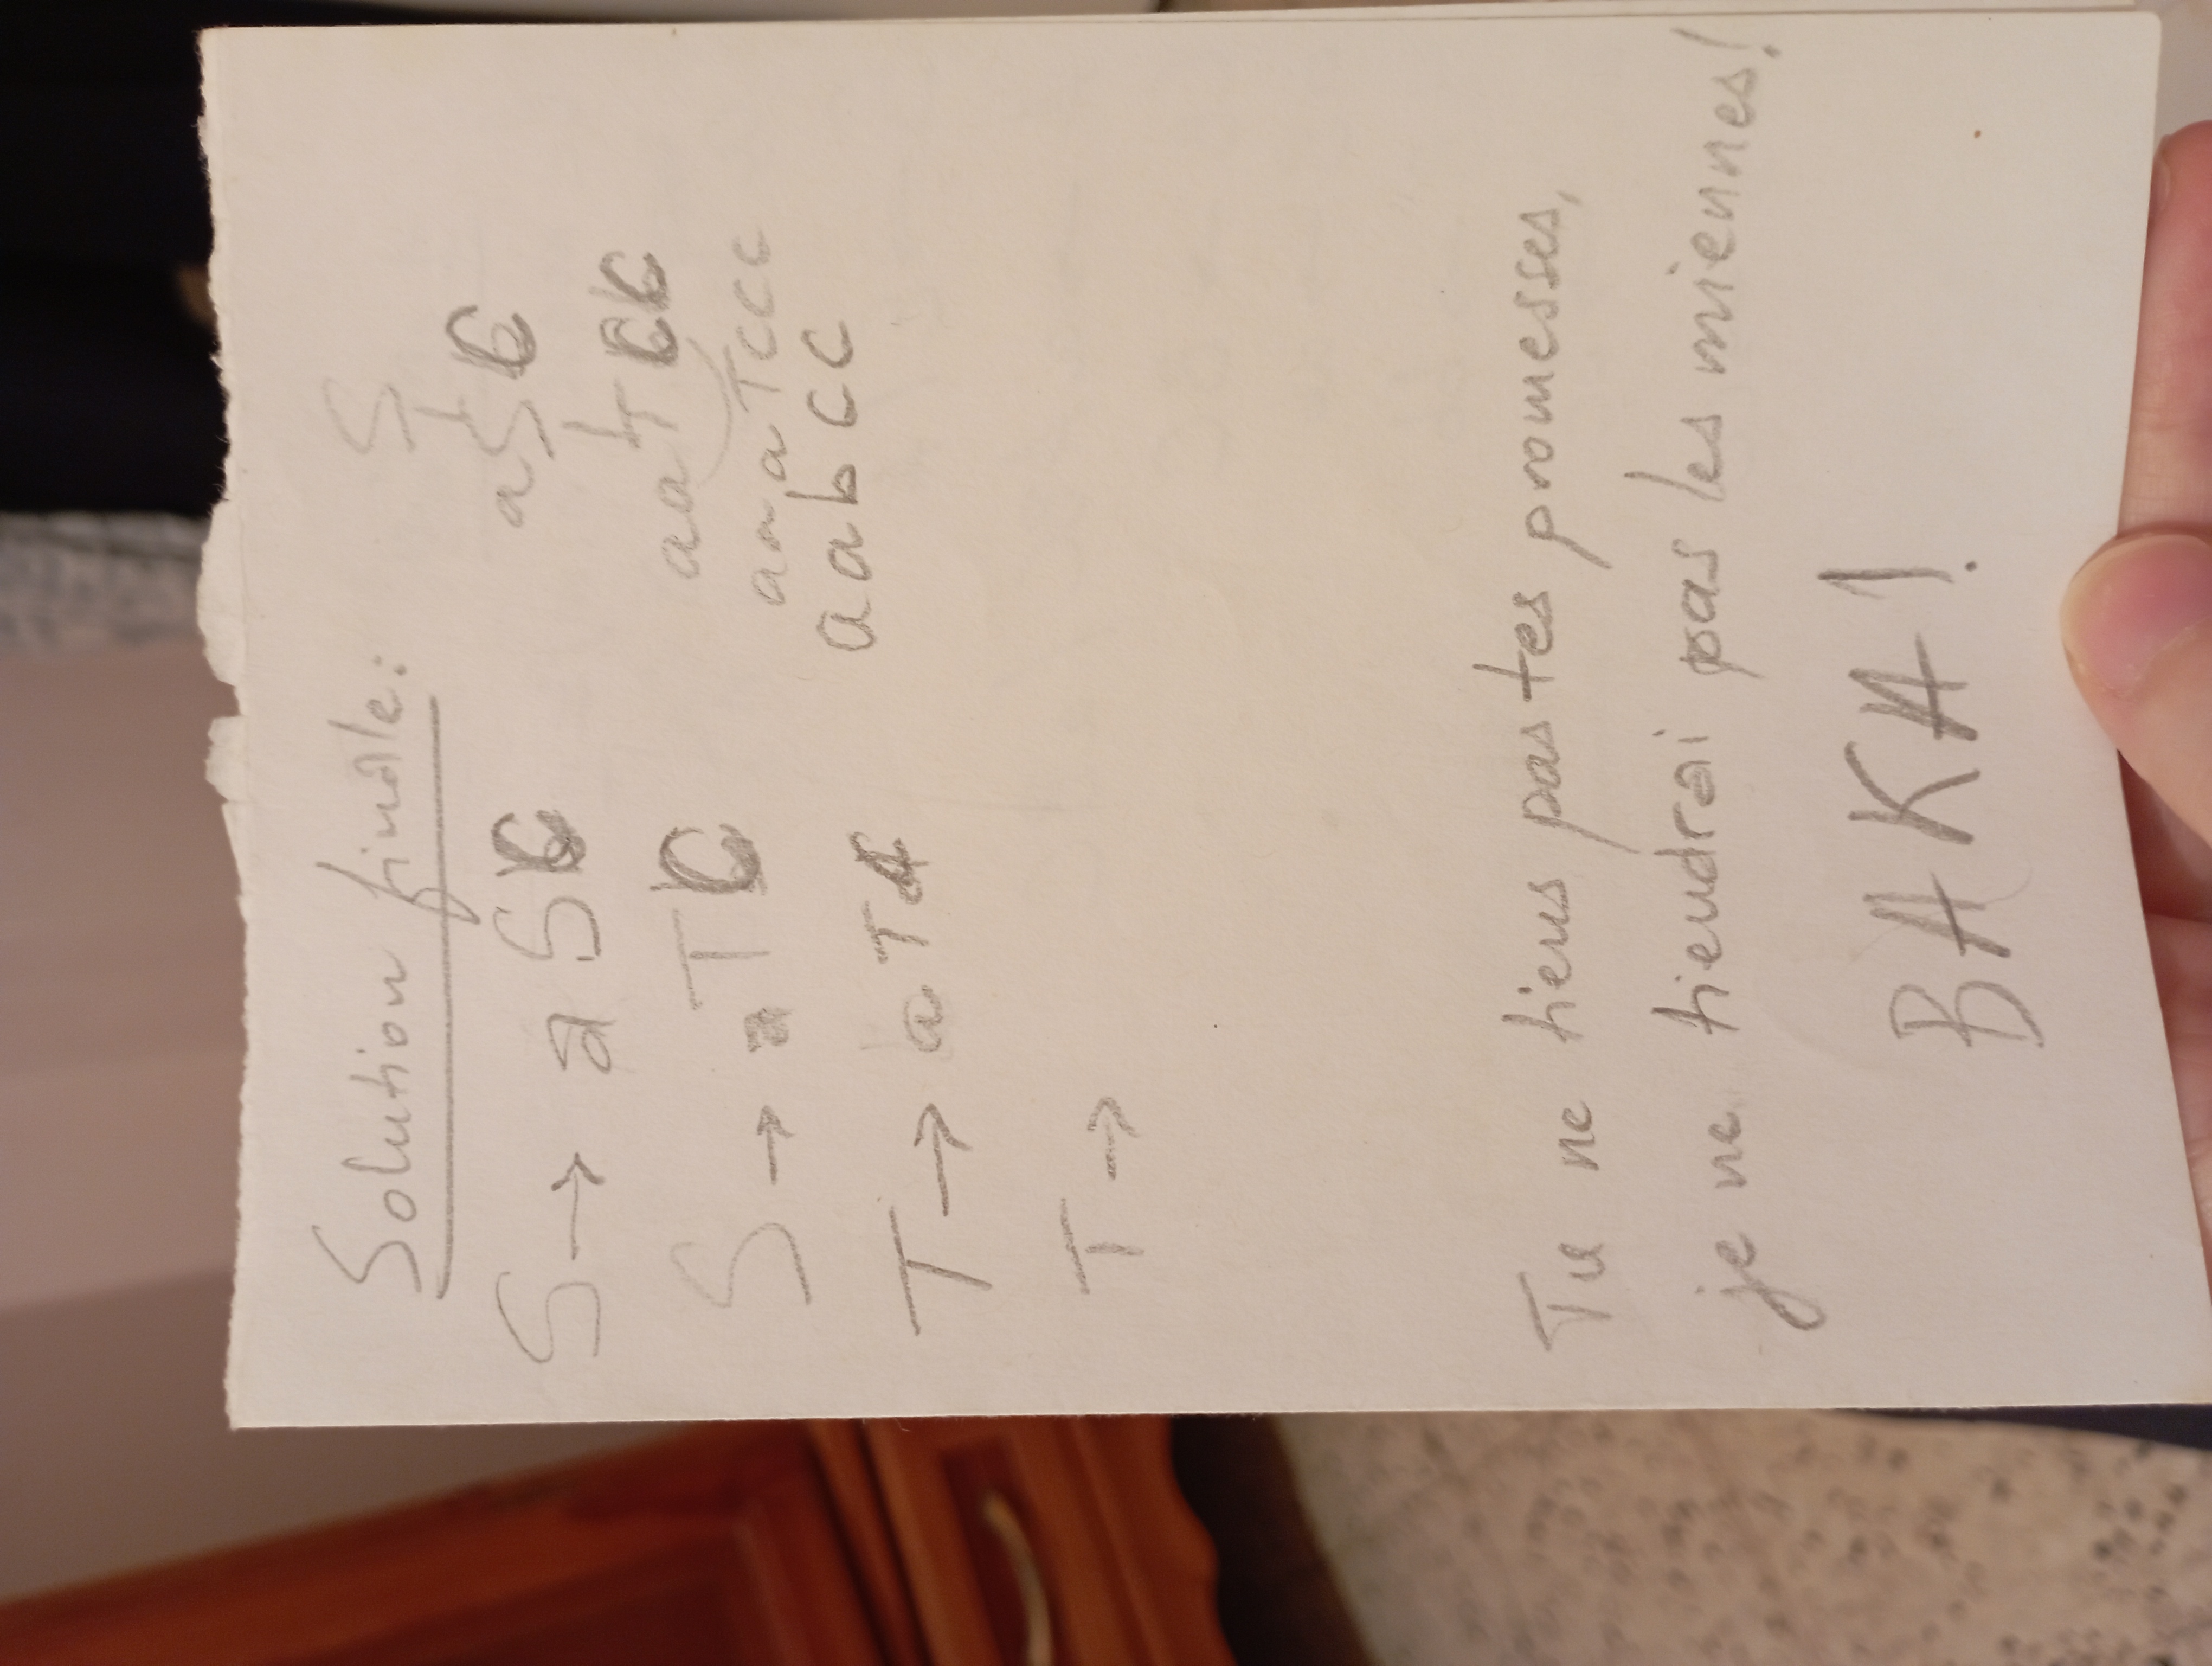 Solution finale:
S → a S C
S → a T C
T → a T C
T →
S
a S C
a a T C C
a a a T c c c
a a b c c
Tu ne tiens pas tes promesses,
je ne tiendrai pas les miennes!
BAKA!